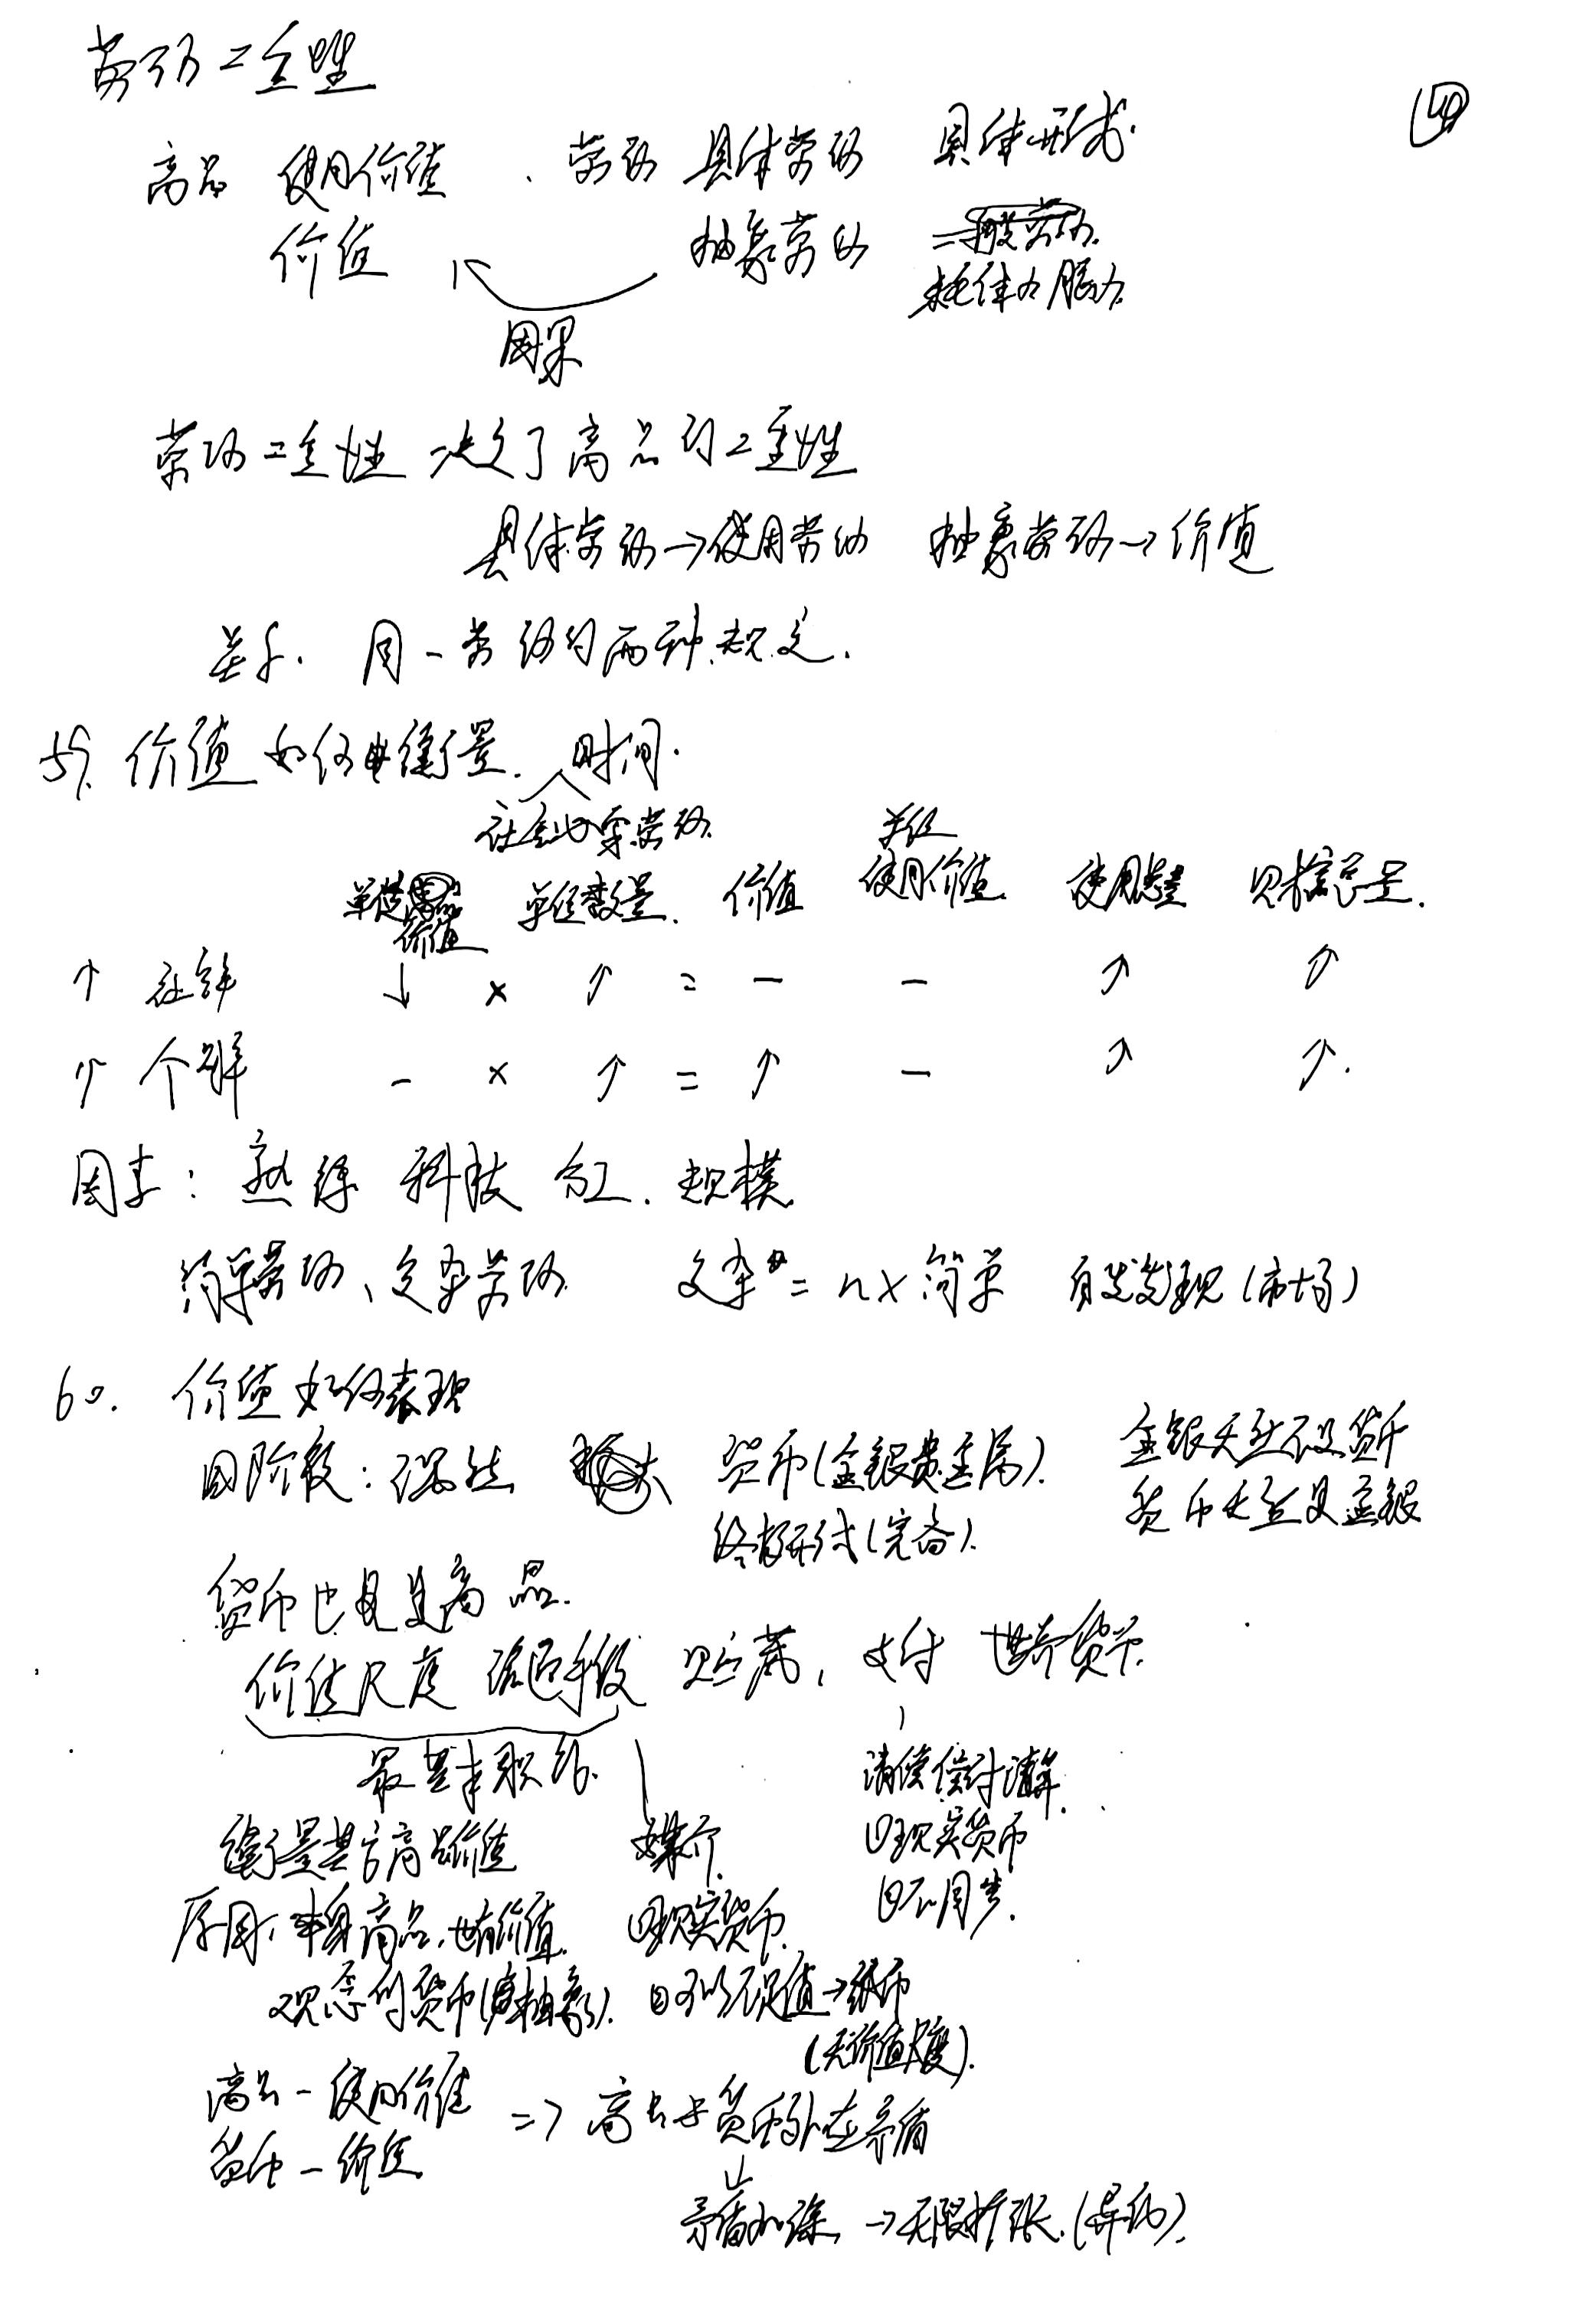 劳动二重性
四
商品 使用价值 、劳动 具体劳动 具体形式.
价值 抽象劳动 =一般劳动.
耗体力脑力.
因果
劳动二重性 决定了商品的二重性
具体劳动→使用劳动 抽象劳动→价值
关系. 同一劳动的两种规定.
59. 价值如何衡量. 时间.
社会必要劳动.
单位
单位商品价值 单位数量. 价值 使用价值. 使用总量 财富总量.
↑ 社劳 ↓ × ↑ = - - ↑ ↑
↑ 个劳 - × ↑ = ↑ - ↑ ↑.
因素: 熟练 科技 分工. 规模.
简单劳动、复杂劳动. 复杂 = n×简单 自发实现(市场)
60. 价值如何表现
四阶段: 偶然 货币(金银贵金属). 金银天生不是货币
终极形式(完备). 货币天生是金银
货币也是商品.
价值尺度 流通手段 贮藏, 支付 世界货币.
最基本职能. 清偿债务
衡量其它商品价值 媒介. ①现实货币
原因: 本身商品,也有价值. ①现实货币. ②不同步.
观念的货币(抽象). ②可以不足值→纸币
(无价值尺度).
商品-使用价值 => 商品与货币外在矛盾
货币-价值
↓
矛盾加深, →无限扩张.(异化).